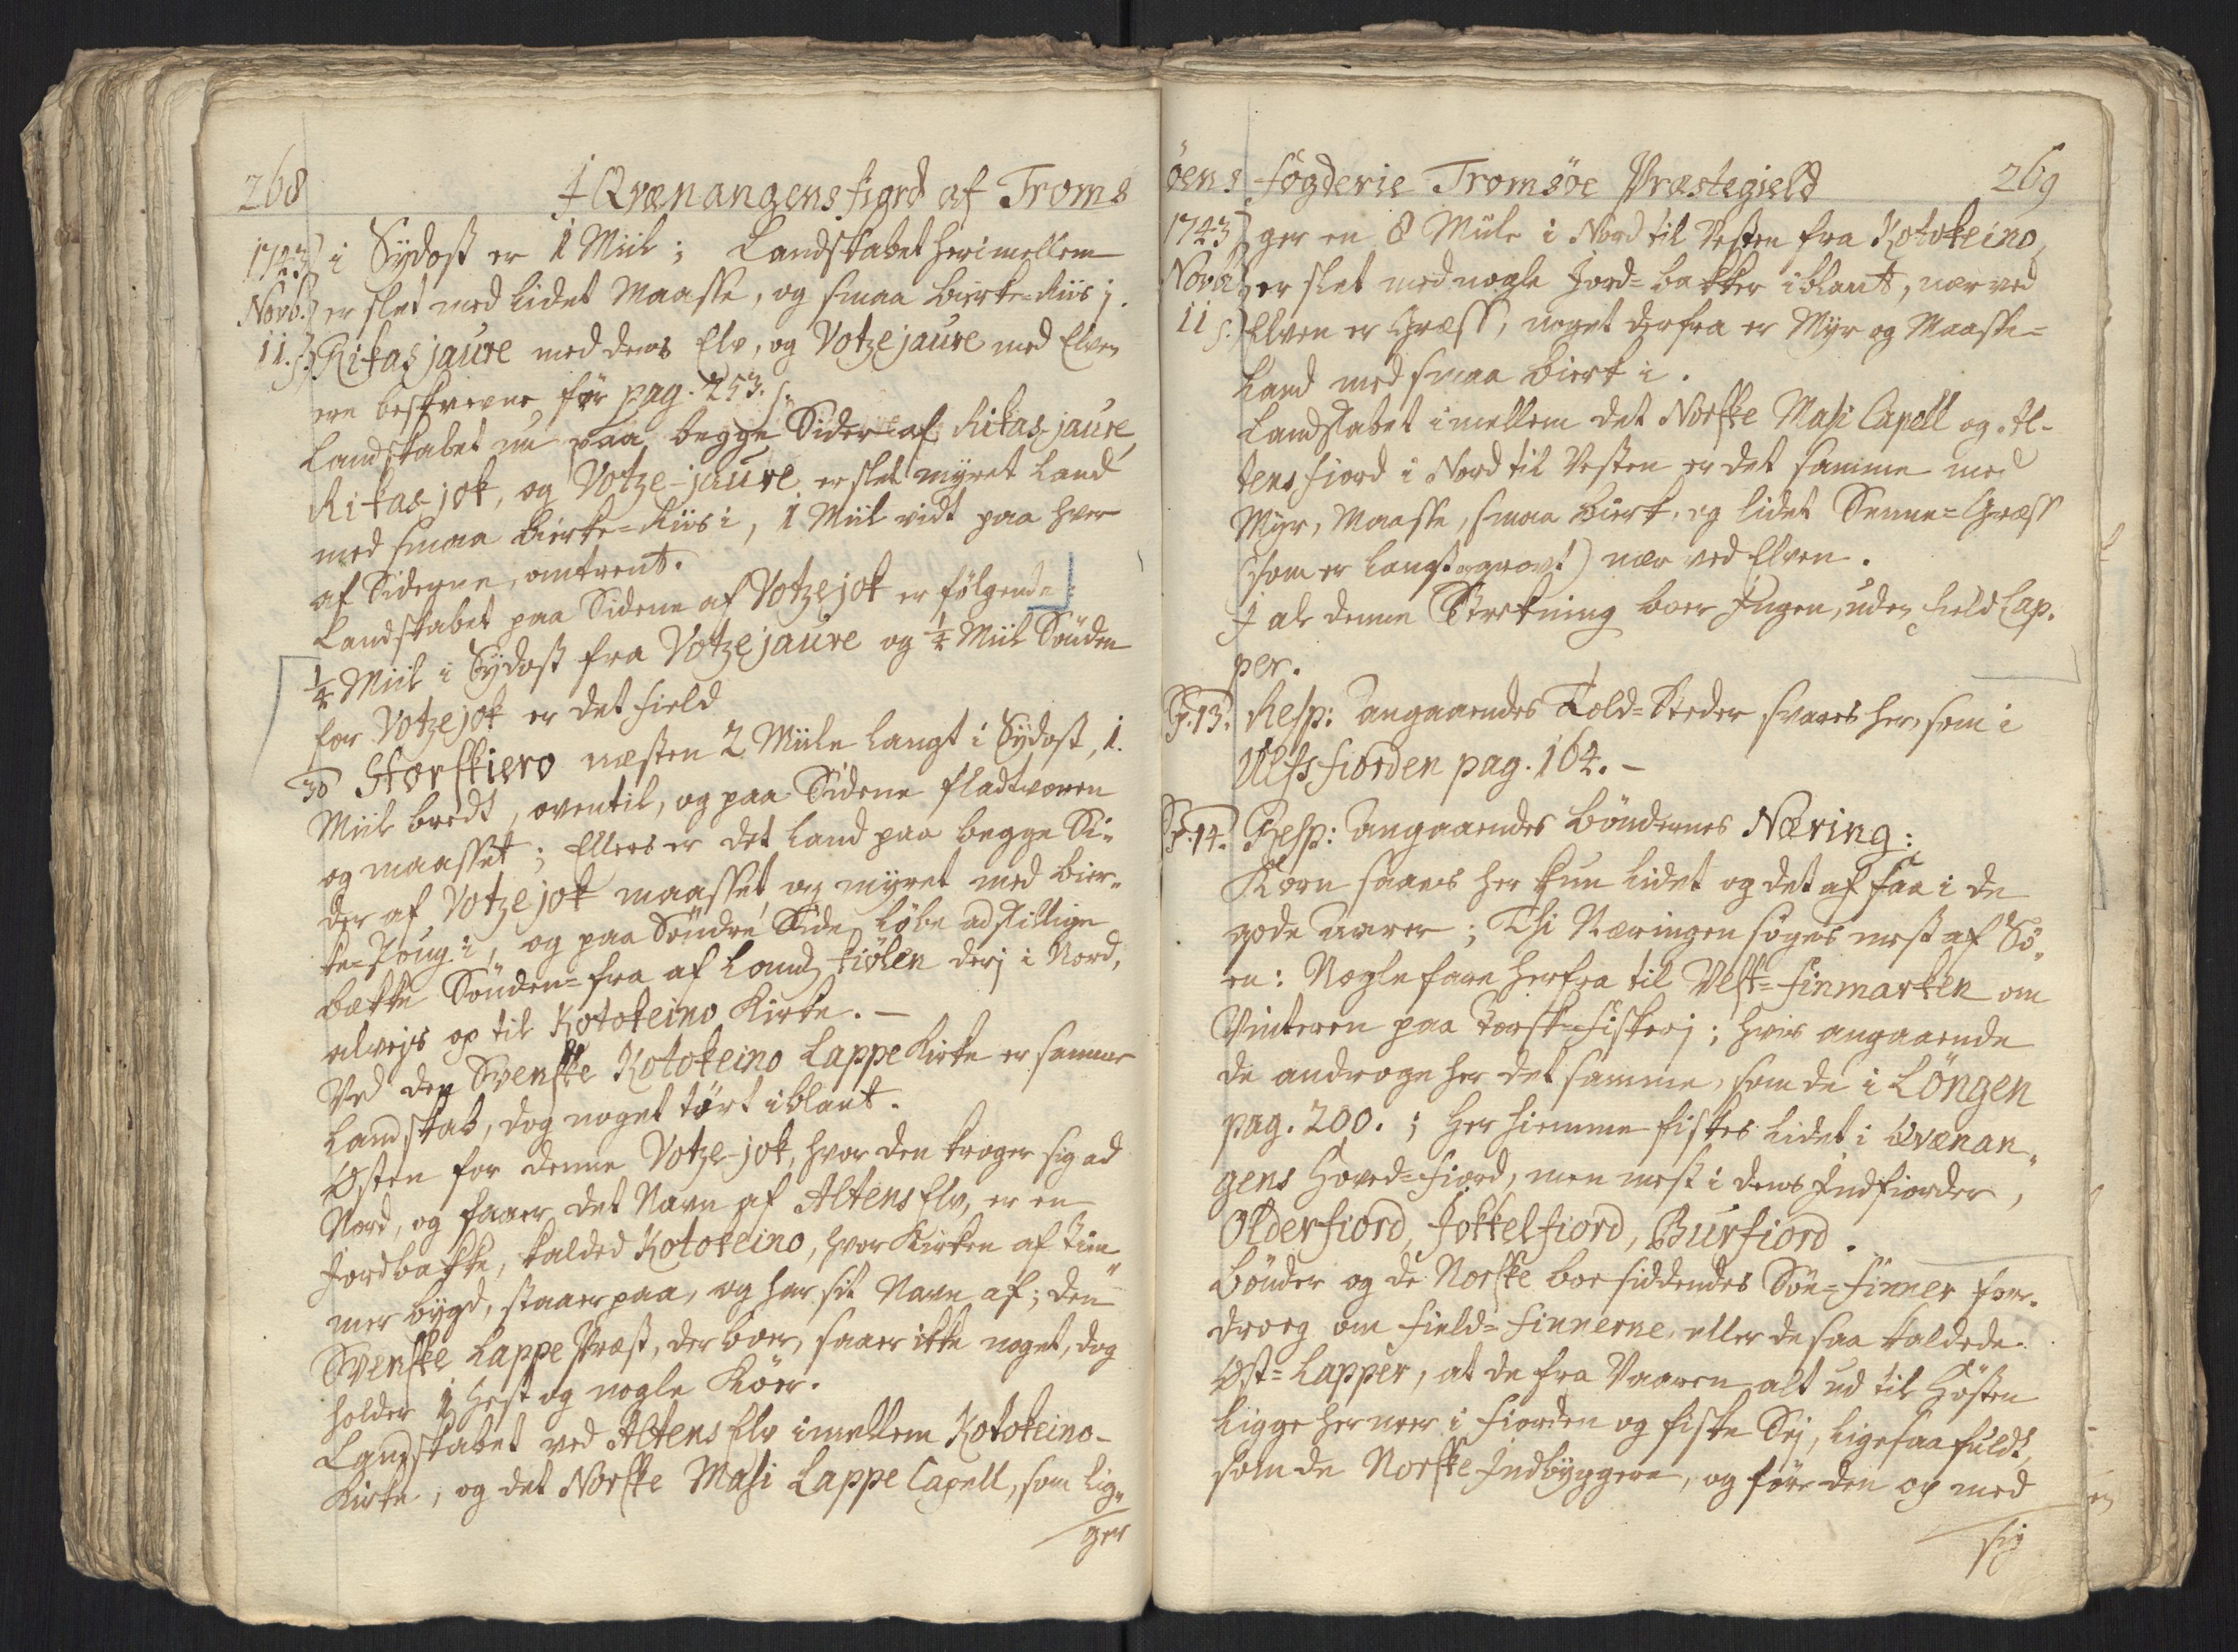 268
I Qvænangens fiord af Troms
1743 i Sydost er 1 Miil; Landskabet herimellem
Novb. er slet med lidet Maasse, og smaa Birke-Riis i.
11. s. Rikasjaure med dens Elv, og Votzejaure med Elven
ere beskrevne før pag. 253. s.
Landskabet nu paa begge Sider af Rikasjaure,
Rikas-jok, og Votze-jaure er slet myret Land
med smaa Birke-Riis i, 1 Miil vidt paa hver
af Siderne, omtrent.
Landskabet paa Sidene af Votzejok er følgende
1/4 Miil i Sydost fra Votzejaure og 1/4 Miil Sönden
for Votzejok er det field
30 Storskiero næsten 2 Miile langt i Sydost, 1.
Miil bredt, oventil, og paa Sidene fladtvoren
og maasset; Ellers er det land paa begge Si-
der af Votzejok maasset og myret med bier-
ke-Skoug i, og paa Söndre Side löbe adskillige
bække Sönden-fra af Landz kiölen derj i Nord,
alvejs op til Kotokeino Kirke. —
Ved den Svenske Kotokeino Lappe Kirke er samme
Landskab, dog noget tört iblant.
Østen for denne Votze-jok, hvor den kroger sig ad
Nord, og faaer det Navn af Altens Elv, er en
Jordbakke, kalded Kotokeino, hvor Kirken af Tim-
mer bygd, staaer paa, og har sit Navn af; den
Svenske Lappe Præst, der boer, saaer ikke noget, dog
holder 1 Hest og nogle Köer.
Landskabet ved Altens Elv imellem Kotokeino-
Kirke, og det Norske Masi Lappe Capell, som lig-
ger
öens fögderie Tromsöe Præstegield
269
1743 ger en 8 Miile i Nord til Vesten fra Kotokeino,
Novb. er slet med nogle Jord-bakker iblant, nær ved
11 s. Elven er Græss, noget derfra er Myr og Maasse-
Land med smaa birk i.
Landskabet imellem det Norske Masi Capell og Al-
tens fiord i Nord til Vesten er det samme med
Myr, Maasse, smaa birk, og lidet Senne-Græss
(som er langt og grovt) nær ved Elven.
I al denne Strekning boer Ingen, uden field Lap-
per.
Sp. 13. Resp: Angaaendes Told-Steder svares her, som i
Ulfsfiorden pag. 164. —
Sp. 14. Resp: Angaaendes Böndernes Næring:
Korn saaes her kun lidet og det af faa i de
gode Aarer; Thi Næringen söges mest af Sö-
en: Nogle fare herfra til Vest-finmarken om
Vinteren paa Torsk-fiskerj; hvis angaaende
de androge her det samme, som de i Löngen
pag. 200.; her hiemme fiskes lidet i Qvænan-
gens Hoved-fiord, men mest i dens Indfiorder,
Olderfiord, Jokkelfiord, Burfiord.
Bönder og de Norske boesiddendes Söe-finner foor-
droeg om field-finnerne, eller de saa kaldede
Øst-Lapper, at de fra Vaaren alt ud til Hösten
ligge her neer i fiorden og fiske Sej, ligesaa fuldt,
som de Norske Indbyggere, og före den op med
sig